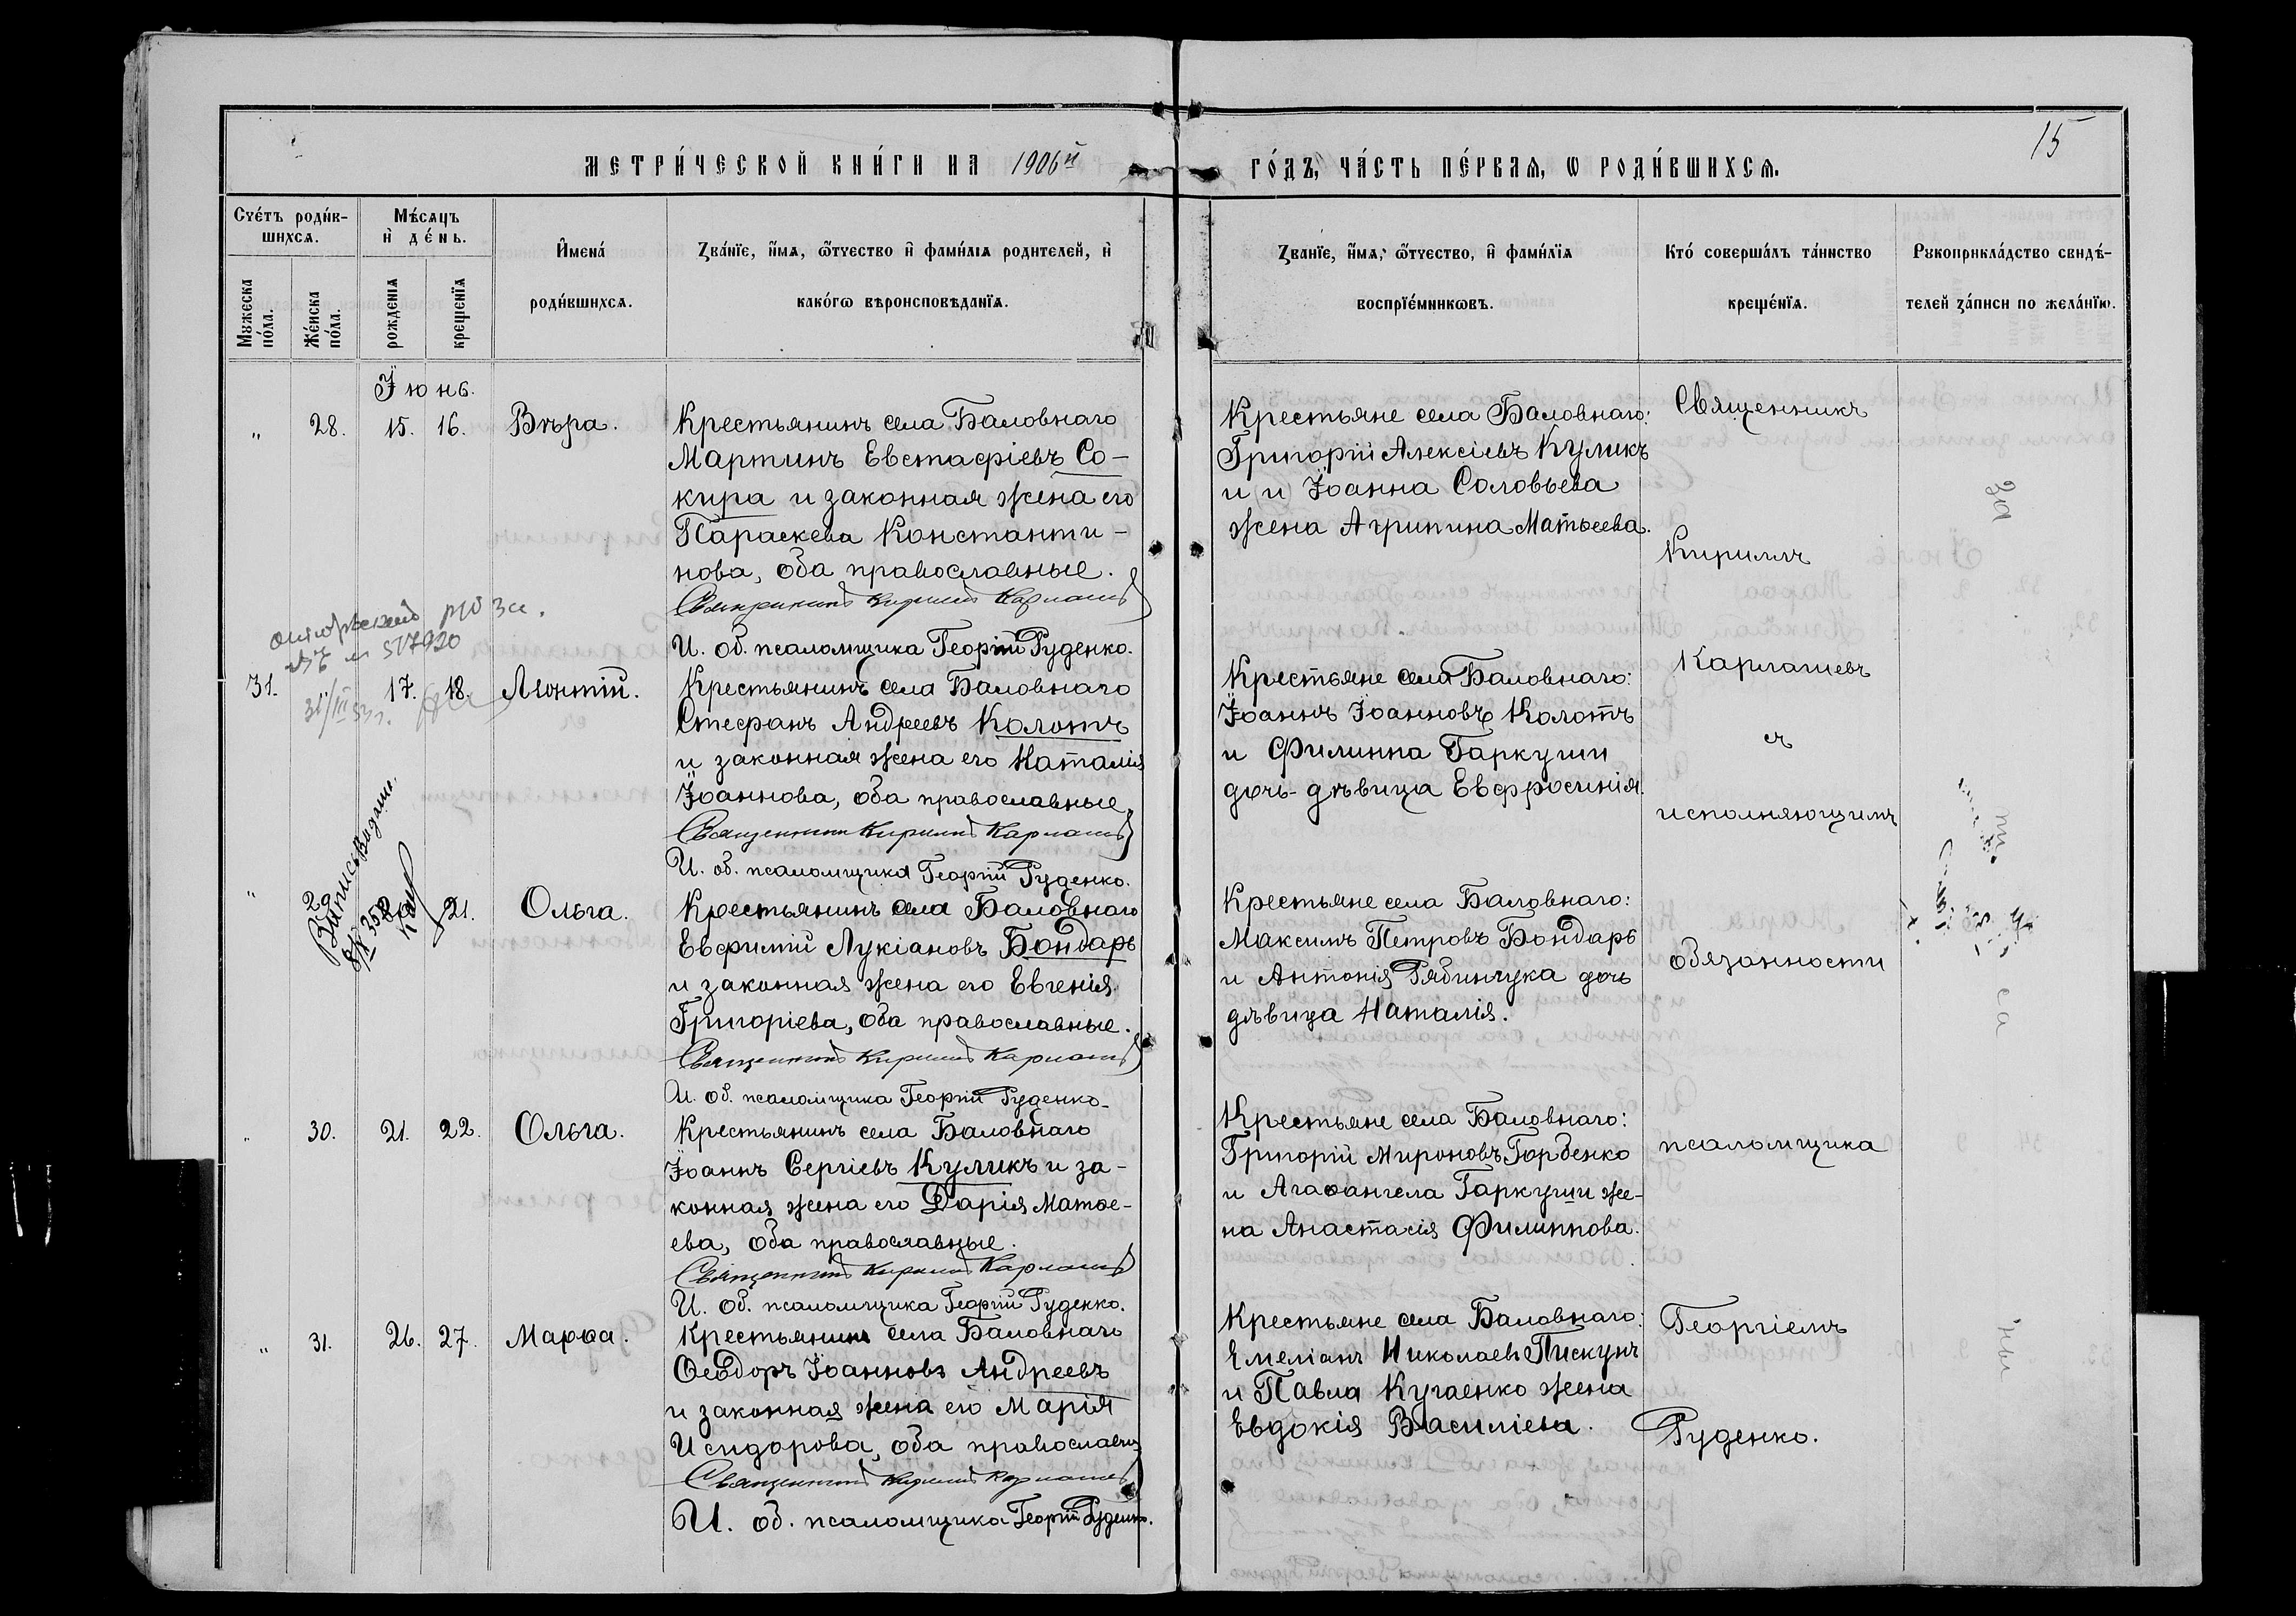 МЕТРИ́ЧЕСКОЙ КНИ́ГИ НА 1906й
ГО́ДЪ, ЧА́СТЬ ПЕ́РВАЯ, Ѡ РОДИ́ВШИХСЯ.
15
Счетъ роди́вшихся.
Му́жеска по́ла.
Же́нска по́ла.
Мѣ́сяцъ и҆ де́нь.
рожденїя
крещенїя
И҆мена́
роди́вшихся.
Зва́нїе, и҆́мя, ѻ҆́тчество и҆ фами́лїя родителей, и҆
како́гѡ вѣроисповѣданїя.
Зва́нїе, и҆́мя, ѻ҆́тчество, и҆ фами́лїя
воспрїе́мникѡвъ.
Кто́ соверша́лъ та́инство
креще́нїя.
Рукоприкла́дство свидѣ-
телей за́писи по жела́нїю.
Іюнь.
„ 28. 15. 16. Вѣра.
Крестьянинъ села Баловнаго
Мартинъ Евстафіевъ Со-
кира и законная жена его
Параскева Константи-
нова, оба православные.
Священникъ Кириллъ Карпашевъ
И. об. псаломщика Георгій Руденко.
Крестьяне села Баловнаго:
Григорій Алексіевъ Куликъ
и и Іоанна Соловьева
жена Агрипина Матѳеева.
517920
31. 17. 18. Леонтій.
Крестьянинъ села Баловнаго
Стефанъ Андреевъ Колотъ
и законная жена его Наталія
Іоаннова, оба православные,
Священникъ Кириллъ Карпашевъ
И. об. псаломщика Георгій Руденко.
Крестьяне села Баловнаго:
Іоаннъ Іоанновъ Колотъ
и Филиппа Гаркуши
дочь-дѣвица Евфросинія.
„ 29 21. Ольга.
Выпись выдана.
358
Крестьянинъ села Баловнаго
Евфимій Лукіановъ Бондарь
и законная жена его Евгенія
Григоріева, оба православные.
Священникъ Кириллъ Карпашевъ
И. об. псаломщика Георгій Руденко.
Крестьяне села Баловнаго:
Максимъ Петровъ Бондарь
и Антонія Рябинчука дочь
дѣвица Наталія.
„ 30. 21. 22. Ольга.
Крестьянинъ села Баловнаго
Іоаннъ Сергіевъ Куликъ и за-
конная жена его Дарія Матѳе-
ева, оба православные.
Священникъ Кириллъ Карпашевъ
И. об. псаломщика Георгій Руденко.
Крестьяне села Баловнаго:
Григорій Мироновъ Горбенко
и Агаѳангела Гаркуши же-
на Анастасія Филиппова.
„ 31. 26. 27. Марѳа.
Крестьянинъ села Баловнаго
Ѳеодоръ Іоанновъ Андреевъ
и законная жена его Марія
Исидорова, оба православн.
Священникъ Кириллъ Карпашевъ
И. об. псаломщика Георгій Руденко.
Крестьяне села Баловнаго:
Емеліанъ Николаевъ Пискунъ
и Павла Кугаенко жена
Евдокія Василіева.
Священникъ
Кириллъ
Карпашевъ
съ
исполняющимъ
обязанности
псаломщика
Георгіемъ
Руденко.